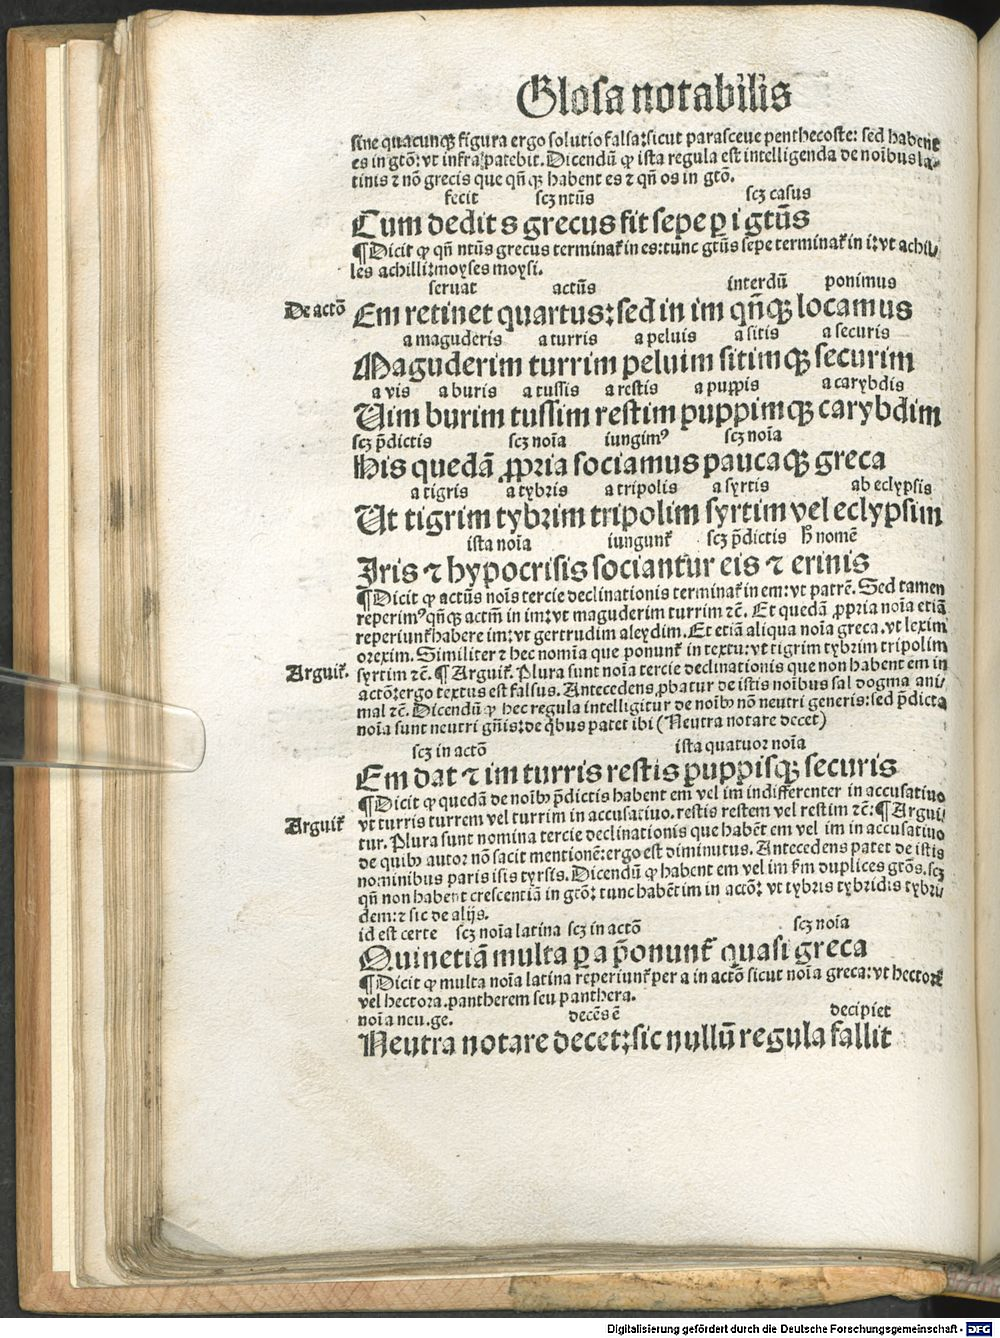 Glosa notabilis
sine quacunqꝫ figura ergo solutio falsa: sicut parasceue penthecoste: sed habent
es in gtō: vt infra patebit. Dicendū ꝙ ista regula est intelligenda de noībus la-
tinis ⁊ nō grecis que qn̄ qꝫ habent es ⁊ qn̄ os in gtō.
fecit scꝫ ntūs scꝫ casus
Cum dedit s grecus fit sepe ꝑ i gtūs
¶ Dicit ꝙ qn̄ ntūs grecus terminat᷑ in es: tunc gtūs sepe terminat᷑ in i: vt achil-
les achilli: moyses moysi.
seruat actūs interdū ponimus
De actō
Em retinet quartus: sed in im qn̄qꝫ locamus
a maguderis a turris a peluis a sitis a securis
Maguderim turrim peluim sitimqꝫ securim
a vis a buris a tussis a restis a puppis a carybdis
Uim burim tussim restim puppimqꝫ carybdim
scꝫ p̄dictis scꝫ noīa iungimꝰ scꝫ noīa
His quedā ꝓpria sociamus paucaqꝫ greca
a tigris a tybris a tripolis a syrtis ab eclypsis
Ut tigrim tybrim tripolim syrtim vel eclypsim
ista noīa iungunt᷑ scꝫ p̄dictis h̄ nomē
Iris ⁊ hypocrisis sociantur eis ⁊ erinis
¶ Dicit ꝙ actūs noīs tercie declinationis terminat᷑ in em: vt patrē. Sed tamen
reperimꝰ qn̄qꝫ actm̄ in im: vt maguderim turrim ⁊c̄. Et quedā ꝓpria noīa etiā
reperiunt᷑ habere im: vt gertrudim aleydim. Et etiā aliqua noīa greca. vt lexim
orexim. Similiter ⁊ hec nomīa que ponunt᷑ in textu: vt tigrim tybrim tripolim
Arguit᷑.
syrtim ⁊c̄. ¶ Arguit᷑. Plura sunt noīa tercie declinationis que non habent em in
actō: ergo textus est falsus. Antecedens ꝓbatur de istis noībus sal dogma ani-
mal ⁊c̄. Dicendū ꝙ hec regula intelligitur de noībꝫ nō neutri generis: sed p̄dicta
noīa sunt neutri gn̄is: de qͥbus patet ibi (Neutra notare decet)
scꝫ in actō ista quatuor noīa
Em dat ⁊ im turris restis puppisqꝫ securis
¶ Dicit ꝙ quedā de noībꝫ p̄dictis habent em vel im indifferenter in accusatiuo
Arguit᷑
vt turris turrem vel turrim in accusatiuo. restis restem vel restim ⁊c̄: ¶ Argui-
tur. Plura sunt nomina tercie declinationis que habēt em vel im in accusatiuo
de quibꝫ autor nō facit mentionē: ergo est diminutus. Antecedens patet de istis
nominibus paris isis tyrsis. Dicendū ꝙ habent em vel im ẜm duplices gtōs. scꝫ
qn̄ non habent crescentiā in gtō: tunc habēt im in actō: vt tybris tybridis tybri-
dem: ⁊ sic de alijs.
id est certe scꝫ noīa latina scꝫ in actō scꝫ noīa
Quinetiā multa ꝑ a p̄onunt᷑ quasi greca
¶ Dicit ꝙ multa noīa latina reperiunt᷑ per a in actō sicut noīa greca: vt hectorē
vel hectora. pantherem seu panthera.
noīa neu. ge. decēs ē decipiet
Neutra notare decet: sic nullū regula fallit
Digitalisierung gefördert durch die Deutsche Forschungsgemeinschaft - DFG